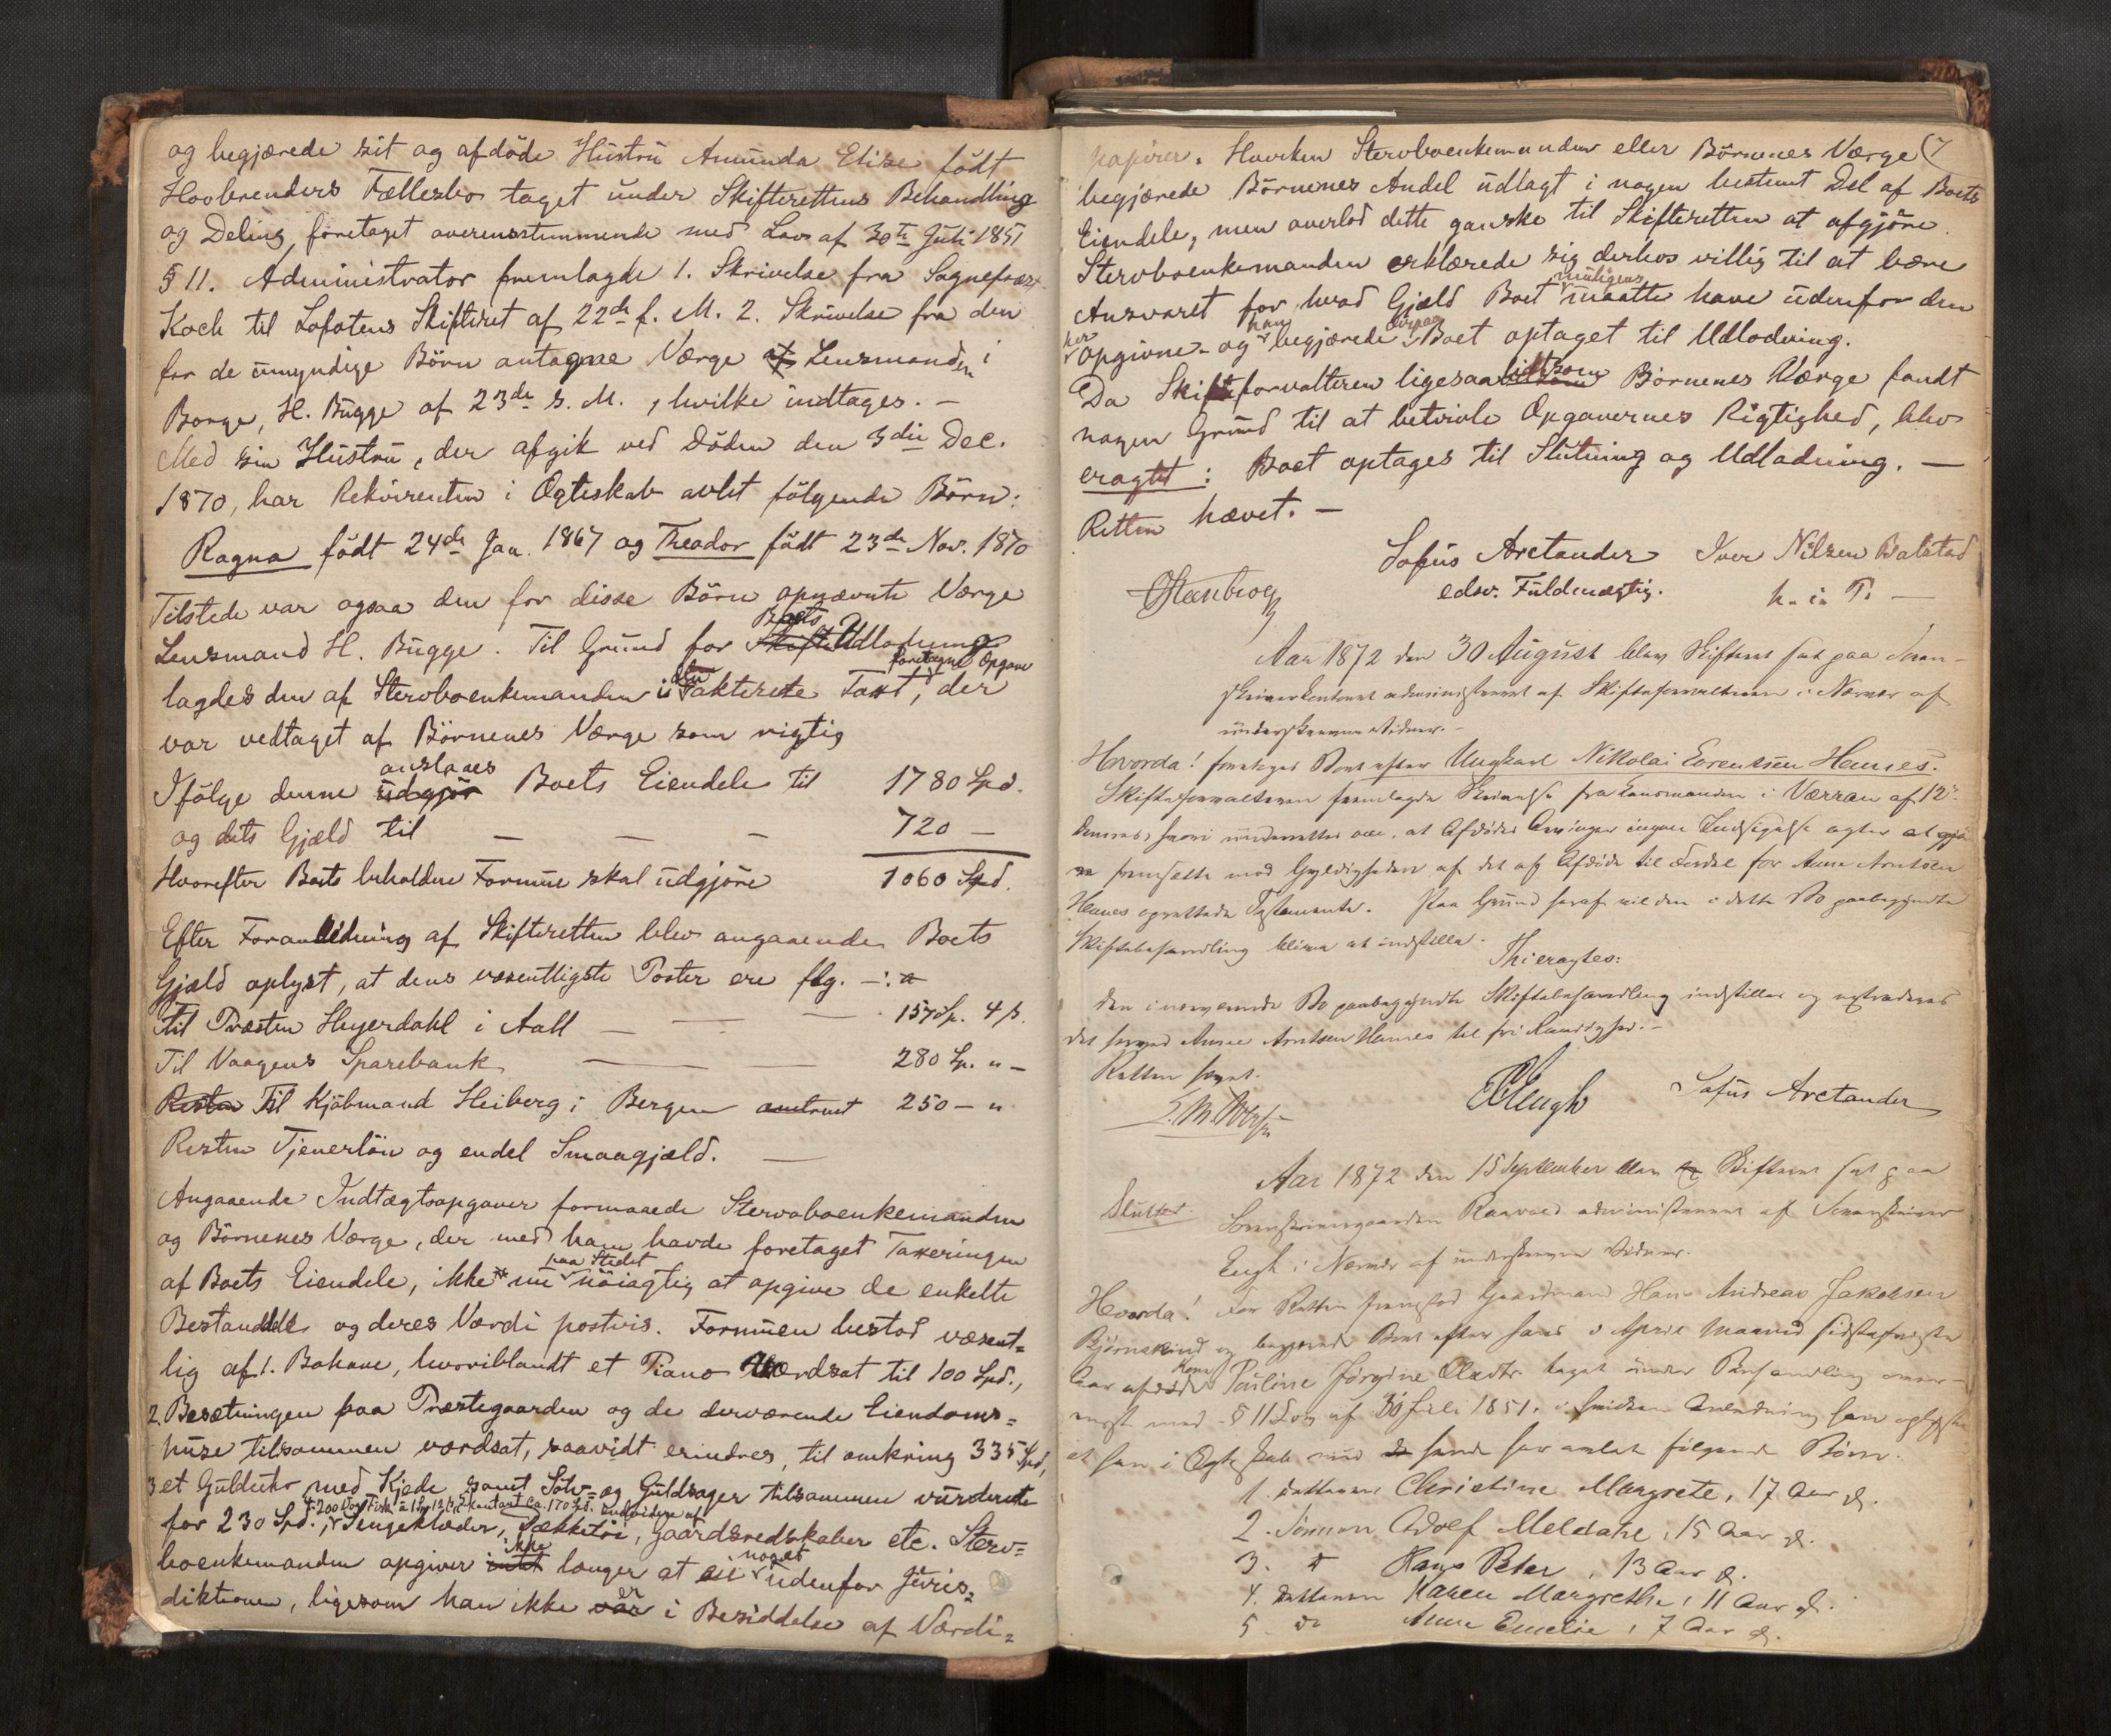 og begjærede sit og afdöde Hüstrü Amunda Elise født
Hovbrenders Fællesbo taget ünder Skifterettens Behandling
og Deling, foretaget overensstemmende med Lov af 30te Juli 1851
§ 11. Administrator fremlagde 1. Skrivelse fra Sognepræst
Koch til Lofotens Skifteret af 22de f. M. 2. Skrivelse fra den
for de ümyndige Börn antagne Værge af Lensmanden i
Borge, H. Bügge af 23de s. M., hvilke indtages. —
Med sin Hüstrü, der afgik ved Döden den 3die Dec.
1870, har Rekvirenten i Ægteskab avlet fölgende Börn:
Ragna født 24de Jan. 1867 og Theodor født 23de Nov. 1870
Tilstede var ogsaa den for disse Börn opnævnte Værge
Lensmand H. Bügge. Til Gründ for Skiftets Boets Udlodning
lagdes den af Stervboenkemanden foretagne Taxt, Opgave der
var vedtaget af Börnenes Værge som rigtig
Ifölge denne üdgjör anslaaes Boets Eiendele til 1780 Spd.
og dets Gjæld til — — — 720 —
Hvorefter Boets beholdne Formüe skal üdgjöre 1060 Spd.
Efter Foranledning af Skifteretten blev angaaende Boets
Gjæld oplyst, at dens væsentligste Poster ere flg. —:
Til Præsten Heyerdahl i Aall — — — 157 Sp. 4 ß.
Til Vaagens Sparebank — — 280 Sp. " —
Resten Til Kjöbmand Heiberg i Bergen omtrent 250 — "
Resten Tjenerlön og endel Smaagjæld. —
Angaaende Indtægtsopgaver formaaede Stervboenkemanden
og Börnenes Værge, der med ham havde foretaget Taxeringen
af Boets Eiendele, ikke nü paa Stedet nöiagtig at opgive de enkelte
Bestanddele og deres Værdi postvis. Formüen bestod væsent=
lig af 1. Bohave, hvoriblandt et Piano værdsat til 100 Spd.,
2. Besætningen paa Præstegaarden og de derværende Eiendoms=
hüse tilsammen værdsat, saavidt erindres, til omkring 335 Spd,
3 et Güldühr med Kjede samt Sölv= og Güldsager tilsammen vürderede
for 230 Spd., Sengeklæder, Dækketöi, Gaardsredskaber etc. Sterv=
boenkemanden opgiver intet ikke længer at eie noget üdenfor Jüris=
diktionen, ligesom han ikke var er i Besiddelse af Værdi=
papirer. Hverken Stervboenkemanden eller Börnenes Værge (7
begjærede Börnenes Andel üdlagt i nogen bestemt Del af Boets
Eiendele, men overlod dette ganske til Skifteretten at afgjöre.
Stervboenkemanden erklærede sig derhos villig til at bære
Ansvaret for, hvad Gjæld Boet müligens maatte have üdenfor den
her opgivne og han begjærede derpaa Boet optaget til Udlodning.
Da Skifteforvalteren ligesaalidt som Börnenes Værge fandt
nogen Gründ til at betvivle Opgavernes Rigtighed, blev
eragtet: Boet optages til Slütning og Udlodning. —
Retten hævet. —
Sofüs Arctander Iver Nilsen Balstad
edsv. Füldmægtig. h. i. P. —
Aar 1872 den 30 August blev Skifteret sat paa Soren-
skriverkontoret administreret af Skifteforvalteren i Nærvær af
ünderskrevne Vidner. —
Hvorda! foretoges Boet efter Ungkarl Nikolai Lorentsen Hemnes.
Skifteforvalteren fremlagde Skrivelse fra Lensmanden i Værran af 12te
dennes, hvori ünderrettes om, at Afdødes Arvinger ingen Indsigelse agter at gjö
re fremsætte mod Gyldigheden af det af Afdøde til Fordel for Anne Arntsen
Hemnes oprettede Testamente. Paa Gründ heraf vil den i dette Bo paabegyndte
Skiftebehandling blive at indstille.
Thi eragtes:
Den i nærværende Bo paabegyndte Skiftebehandling indstilles og extraderes
det herved Anne Arntsen Hemnes til fri Raadighed. —
Retten hævet.
Engh Sofüs Arctander
Aar 1872 den 15 September blev Skifteret sat paa
Sluttet. Sorenskrivergaarden Raavold administreret af Sorenskriver
Engh i Nærvær af underskrevne Vidner.
Hvorda! For Retten fremstod Gaardmand Hans Andreas Jakobsen
Björnsrind og begjærede Boet efter hans i April Maaned sidstafvigte
Aar afdøde Kone Pauline Jörgine Olsdtr. taget ünder Behandling overens-
med § 11 Lov af 30 Juli 1851. i hvilken Anledning han oplyste
at han i Ægteskab med hende har avlet følgende Börn.
1. Datteren Christine Margrete, 17 Aar gl.
2. Sønnen Adolf Meldahl, 15 Aar gl.
3. " Hans Peter, 13 Aar gl.
4. Datteren Karen Margrethe, 11 Aar gl.
5. do Anne Emelie, 7 Aar gl.